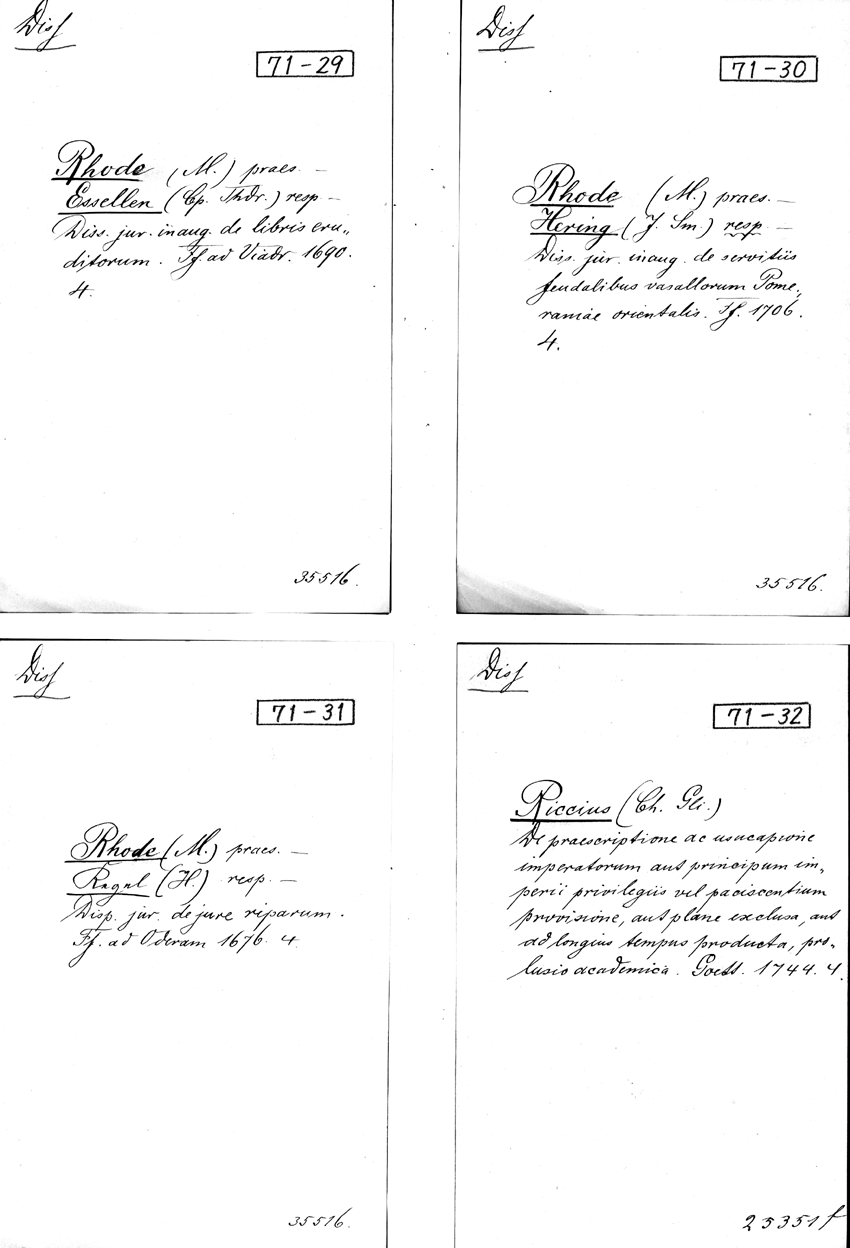 Diss
71-29
Rhode (M.) praes. —
Essellen (Cp. Thdr.) resp —
Diss. jur. inaug. de libris eru„
ditorum. Ff. ad Viadr. 1690.
4.
35516.
Diss
71-30
Rhode (M.) praes. —
Hering (J. Sm.) resp —
Diss. jur. inaug. de servitiis
feudalibus vasallorum Pome„
raniae orientalis. Ff. 1706.
4.
35516.
Diss
71-31
Rhode (M.) praes. —
Regel (H.) resp. —
Disp. jur. de jure riparum.
Ff. ad Oderam 1676. 4.
35516.
Diss
71-32
Riccius (Ch. Gli.)
De praescriptione ac usucapione
imperatorum aut principum im„
perii privilegiis vel paciscentium
provisione, aut plane exclusa, aut
ad longius tempus producta, pro„
lusio academica. Goett. 1744. 4.
25351f